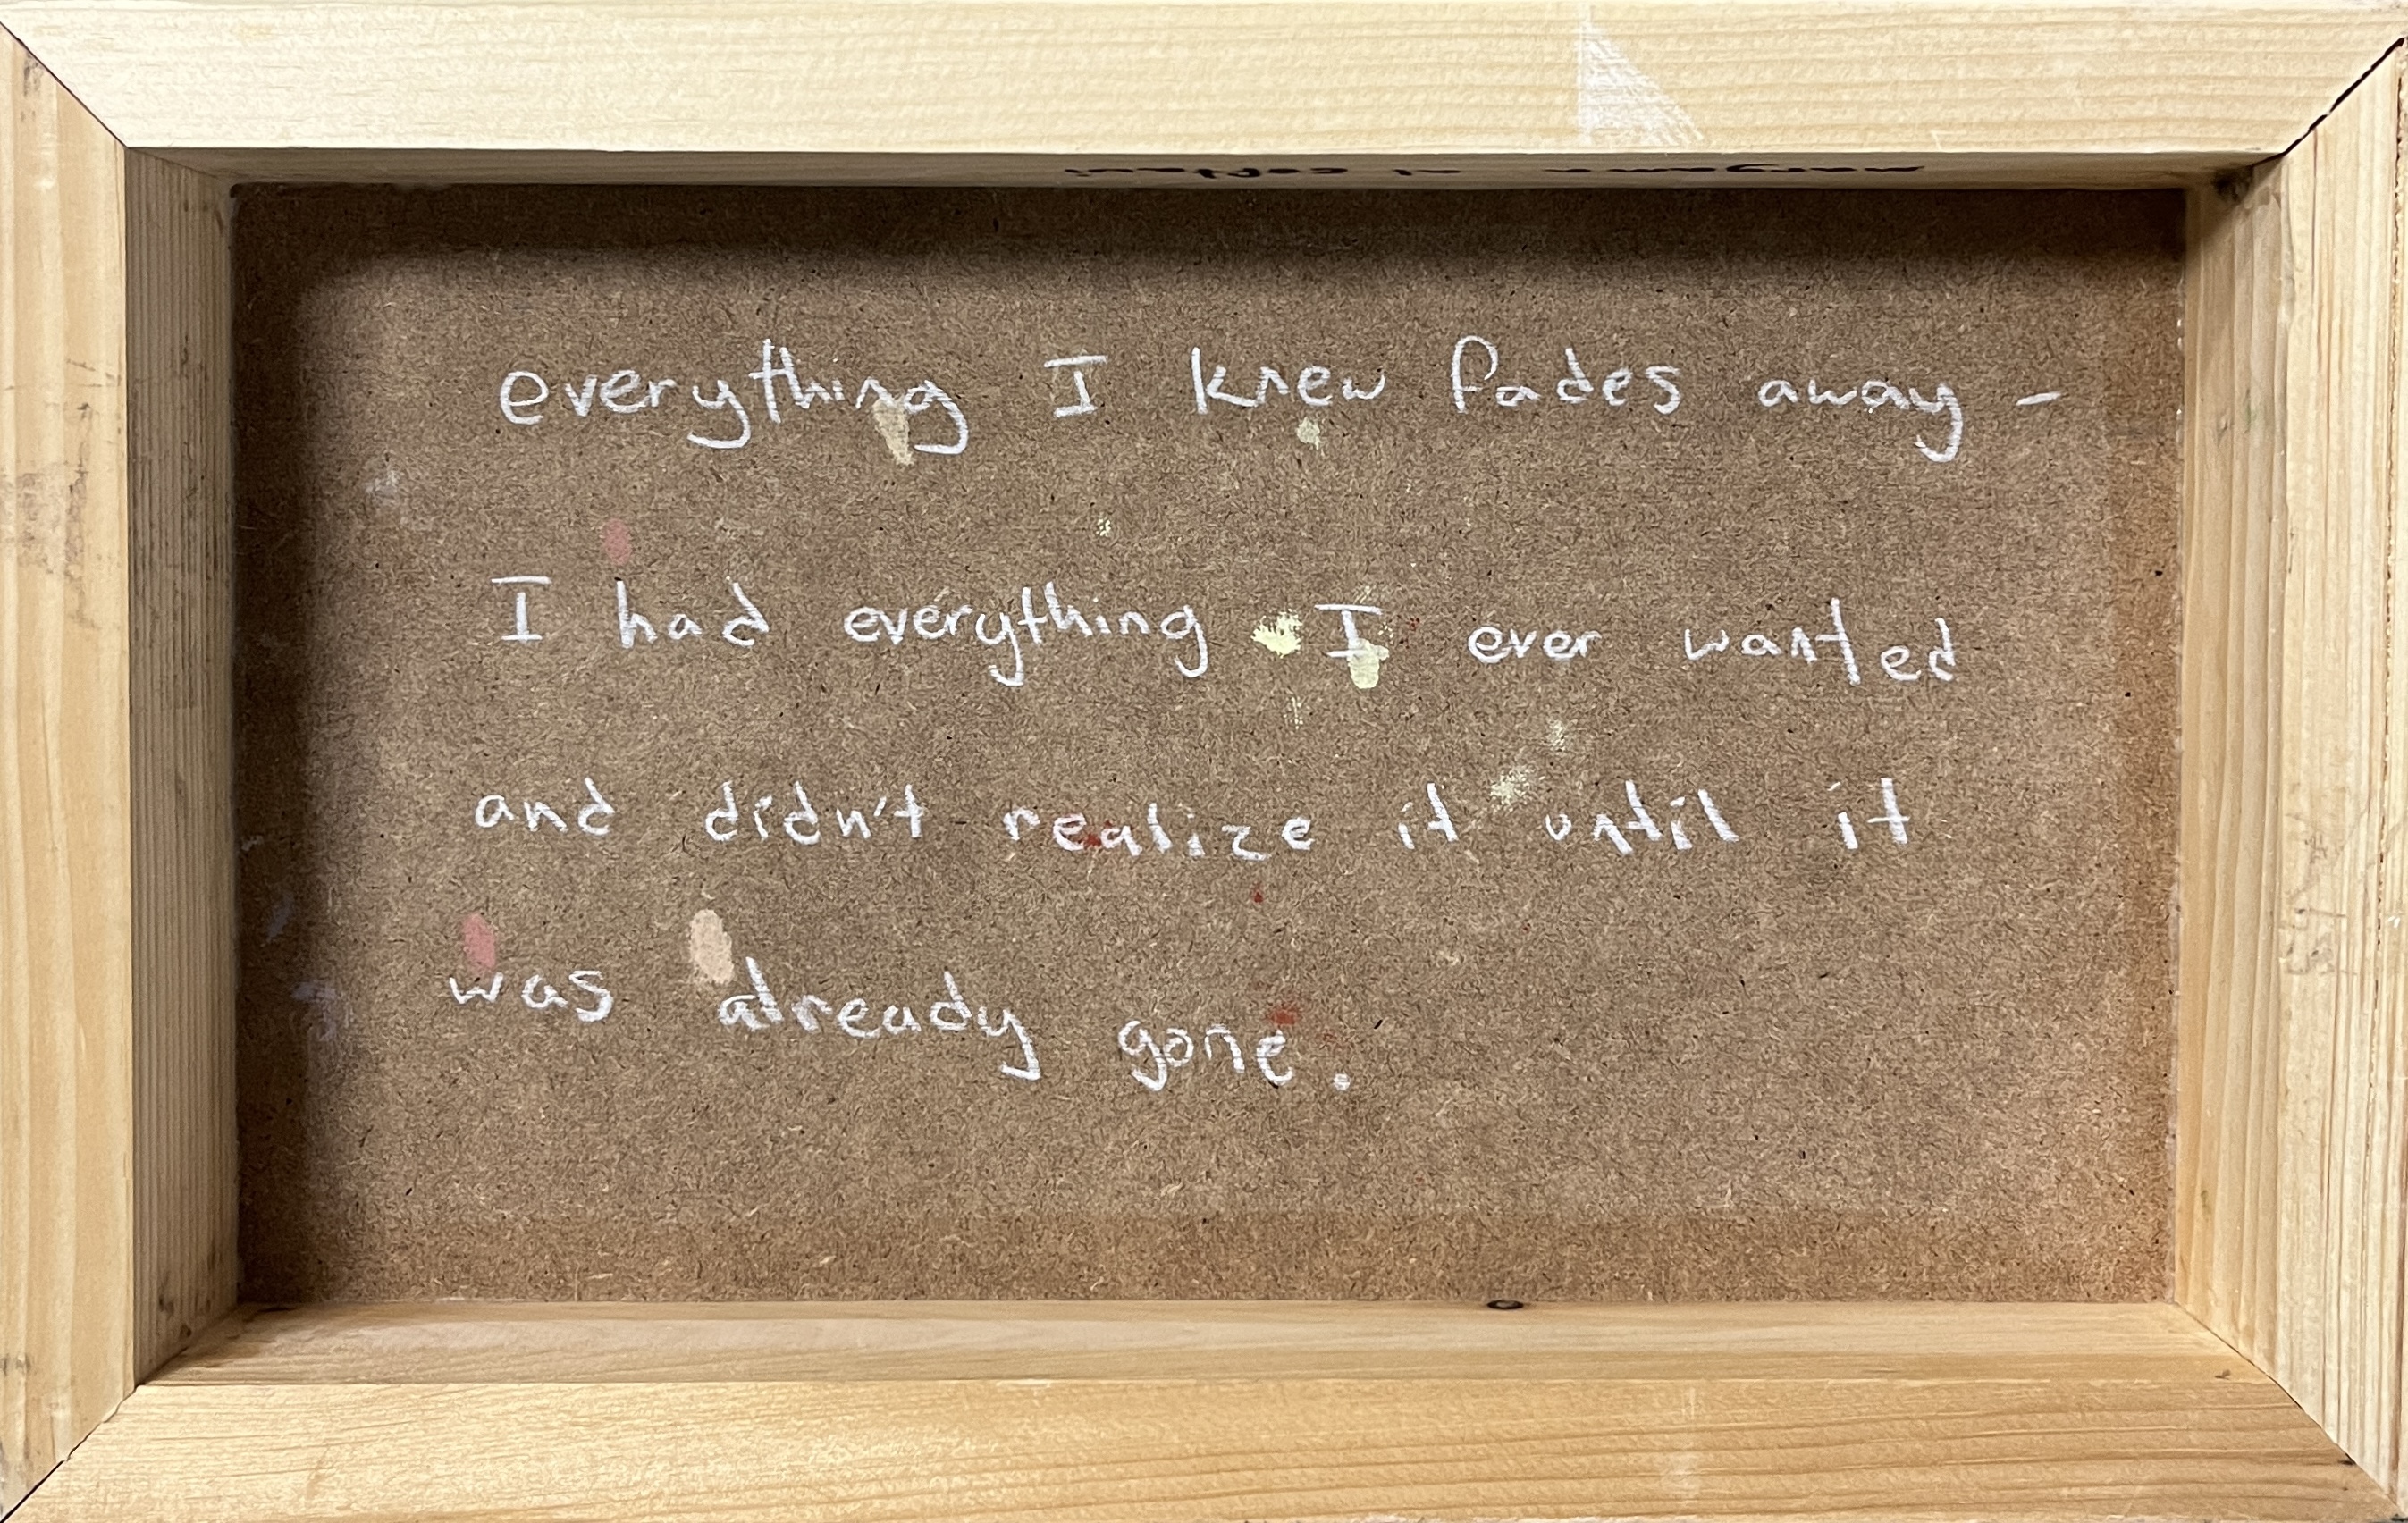 everything I knew fades away -
I had everything I ever wanted
and didn't realize it until it
was already gone.